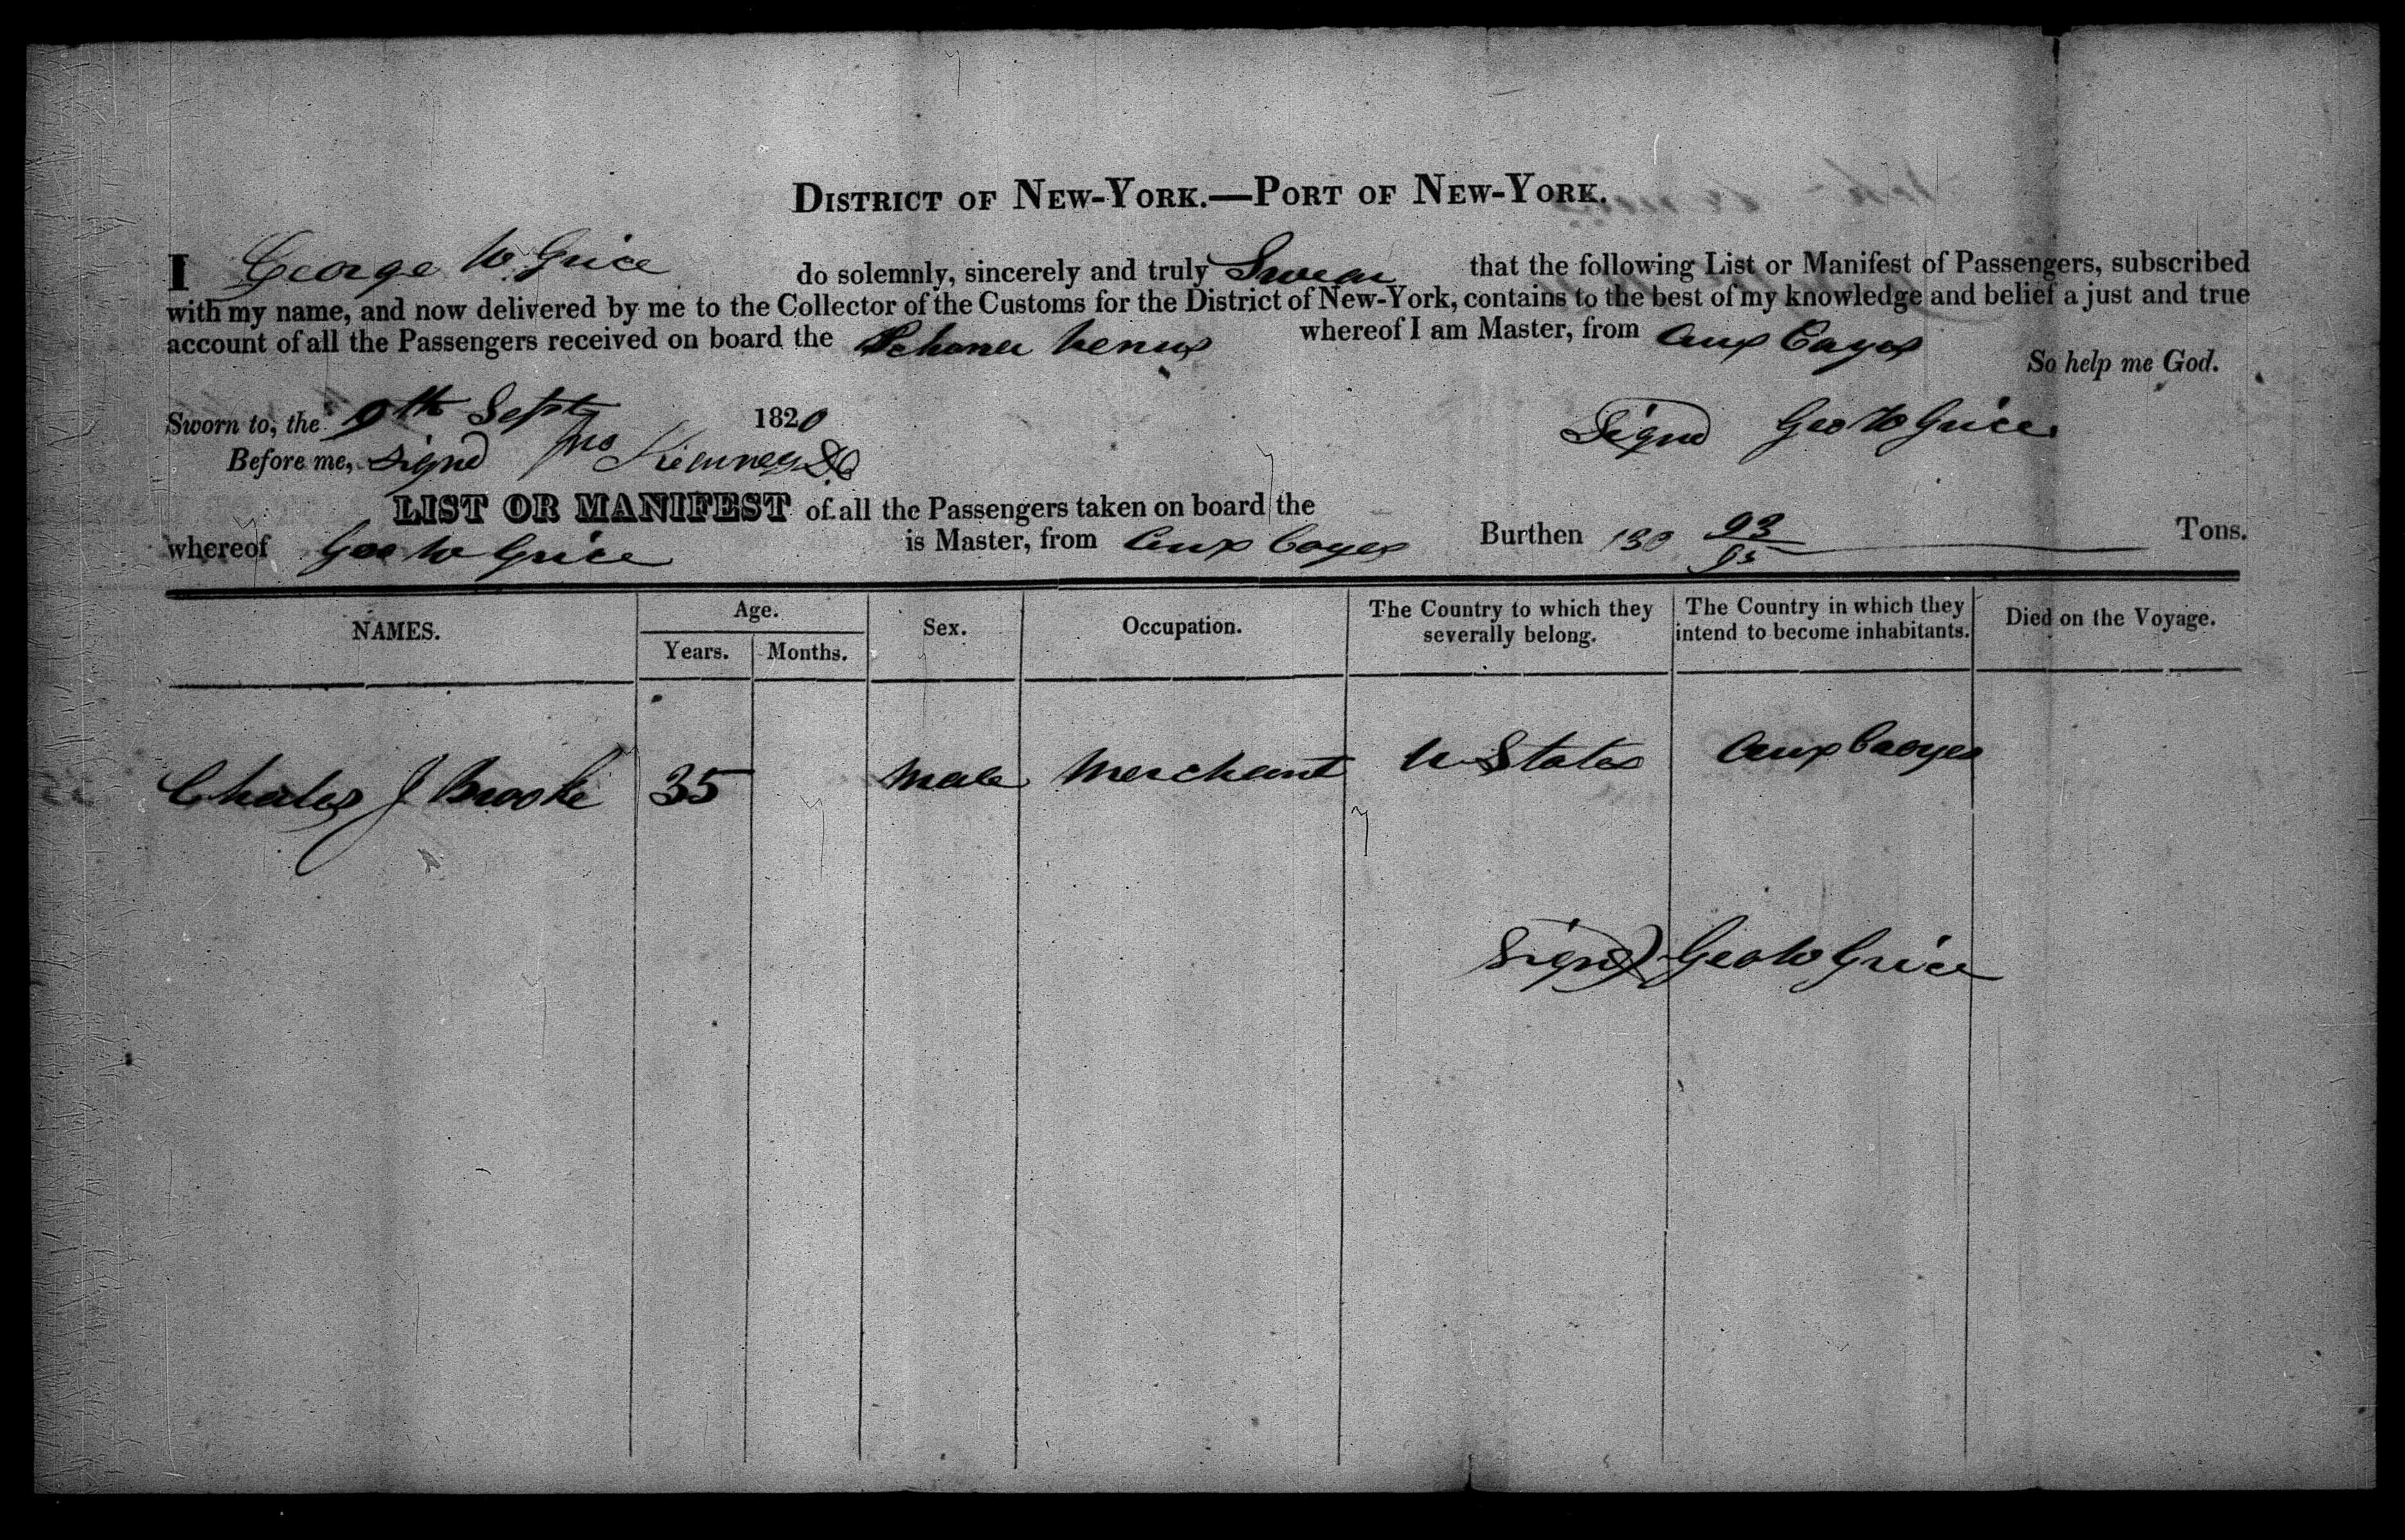 DISTRICT OF NEW-YORK.—PORT OF NEW-YORK.
I George W Grice do solemnly, sincerely and truly Swear that the following List or Manifest of Passengers, subscribed
with my name, and now delivered by me to the Collector of the Customs for the District of New-York, contains to the best of my knowledge and belief a just and true
account of all the Passengers received on board the Schoner Venus whereof I am Master, from Aux Cayes
So help me God.
Sworn to, the 9th Sept 1820 Signd Geo W Grice
Before me, Signd Jno
LIST OR MANIFEST of all the Passengers taken on board the
whereof Geo W Grice is Master, from Aux Cayes Burthen 130 93/95 Tons.
NAMES. Age. Years. Months. Sex. Occupation. The Country to which they severally belong. The Country in which they intend to become inhabitants. Died on the Voyage.
Charles J Brooke 35 Male Merchant U States Aux Caoyes
Signd Geo W Grice